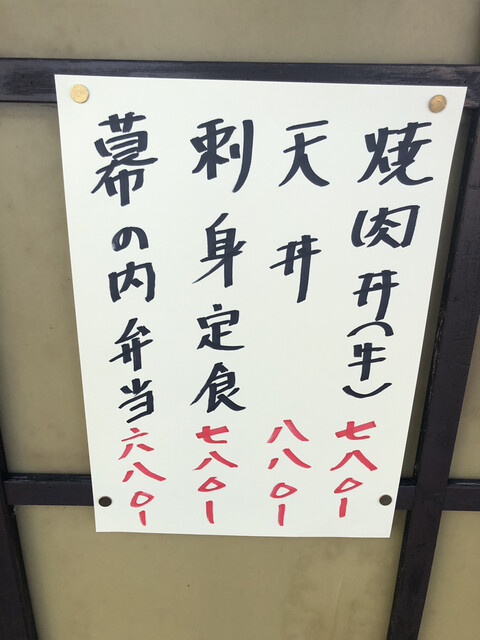 焼肉丼(牛)七八〇ー
天丼八八〇ー
刺身定食七八〇ー
幕の内弁当六八〇ー